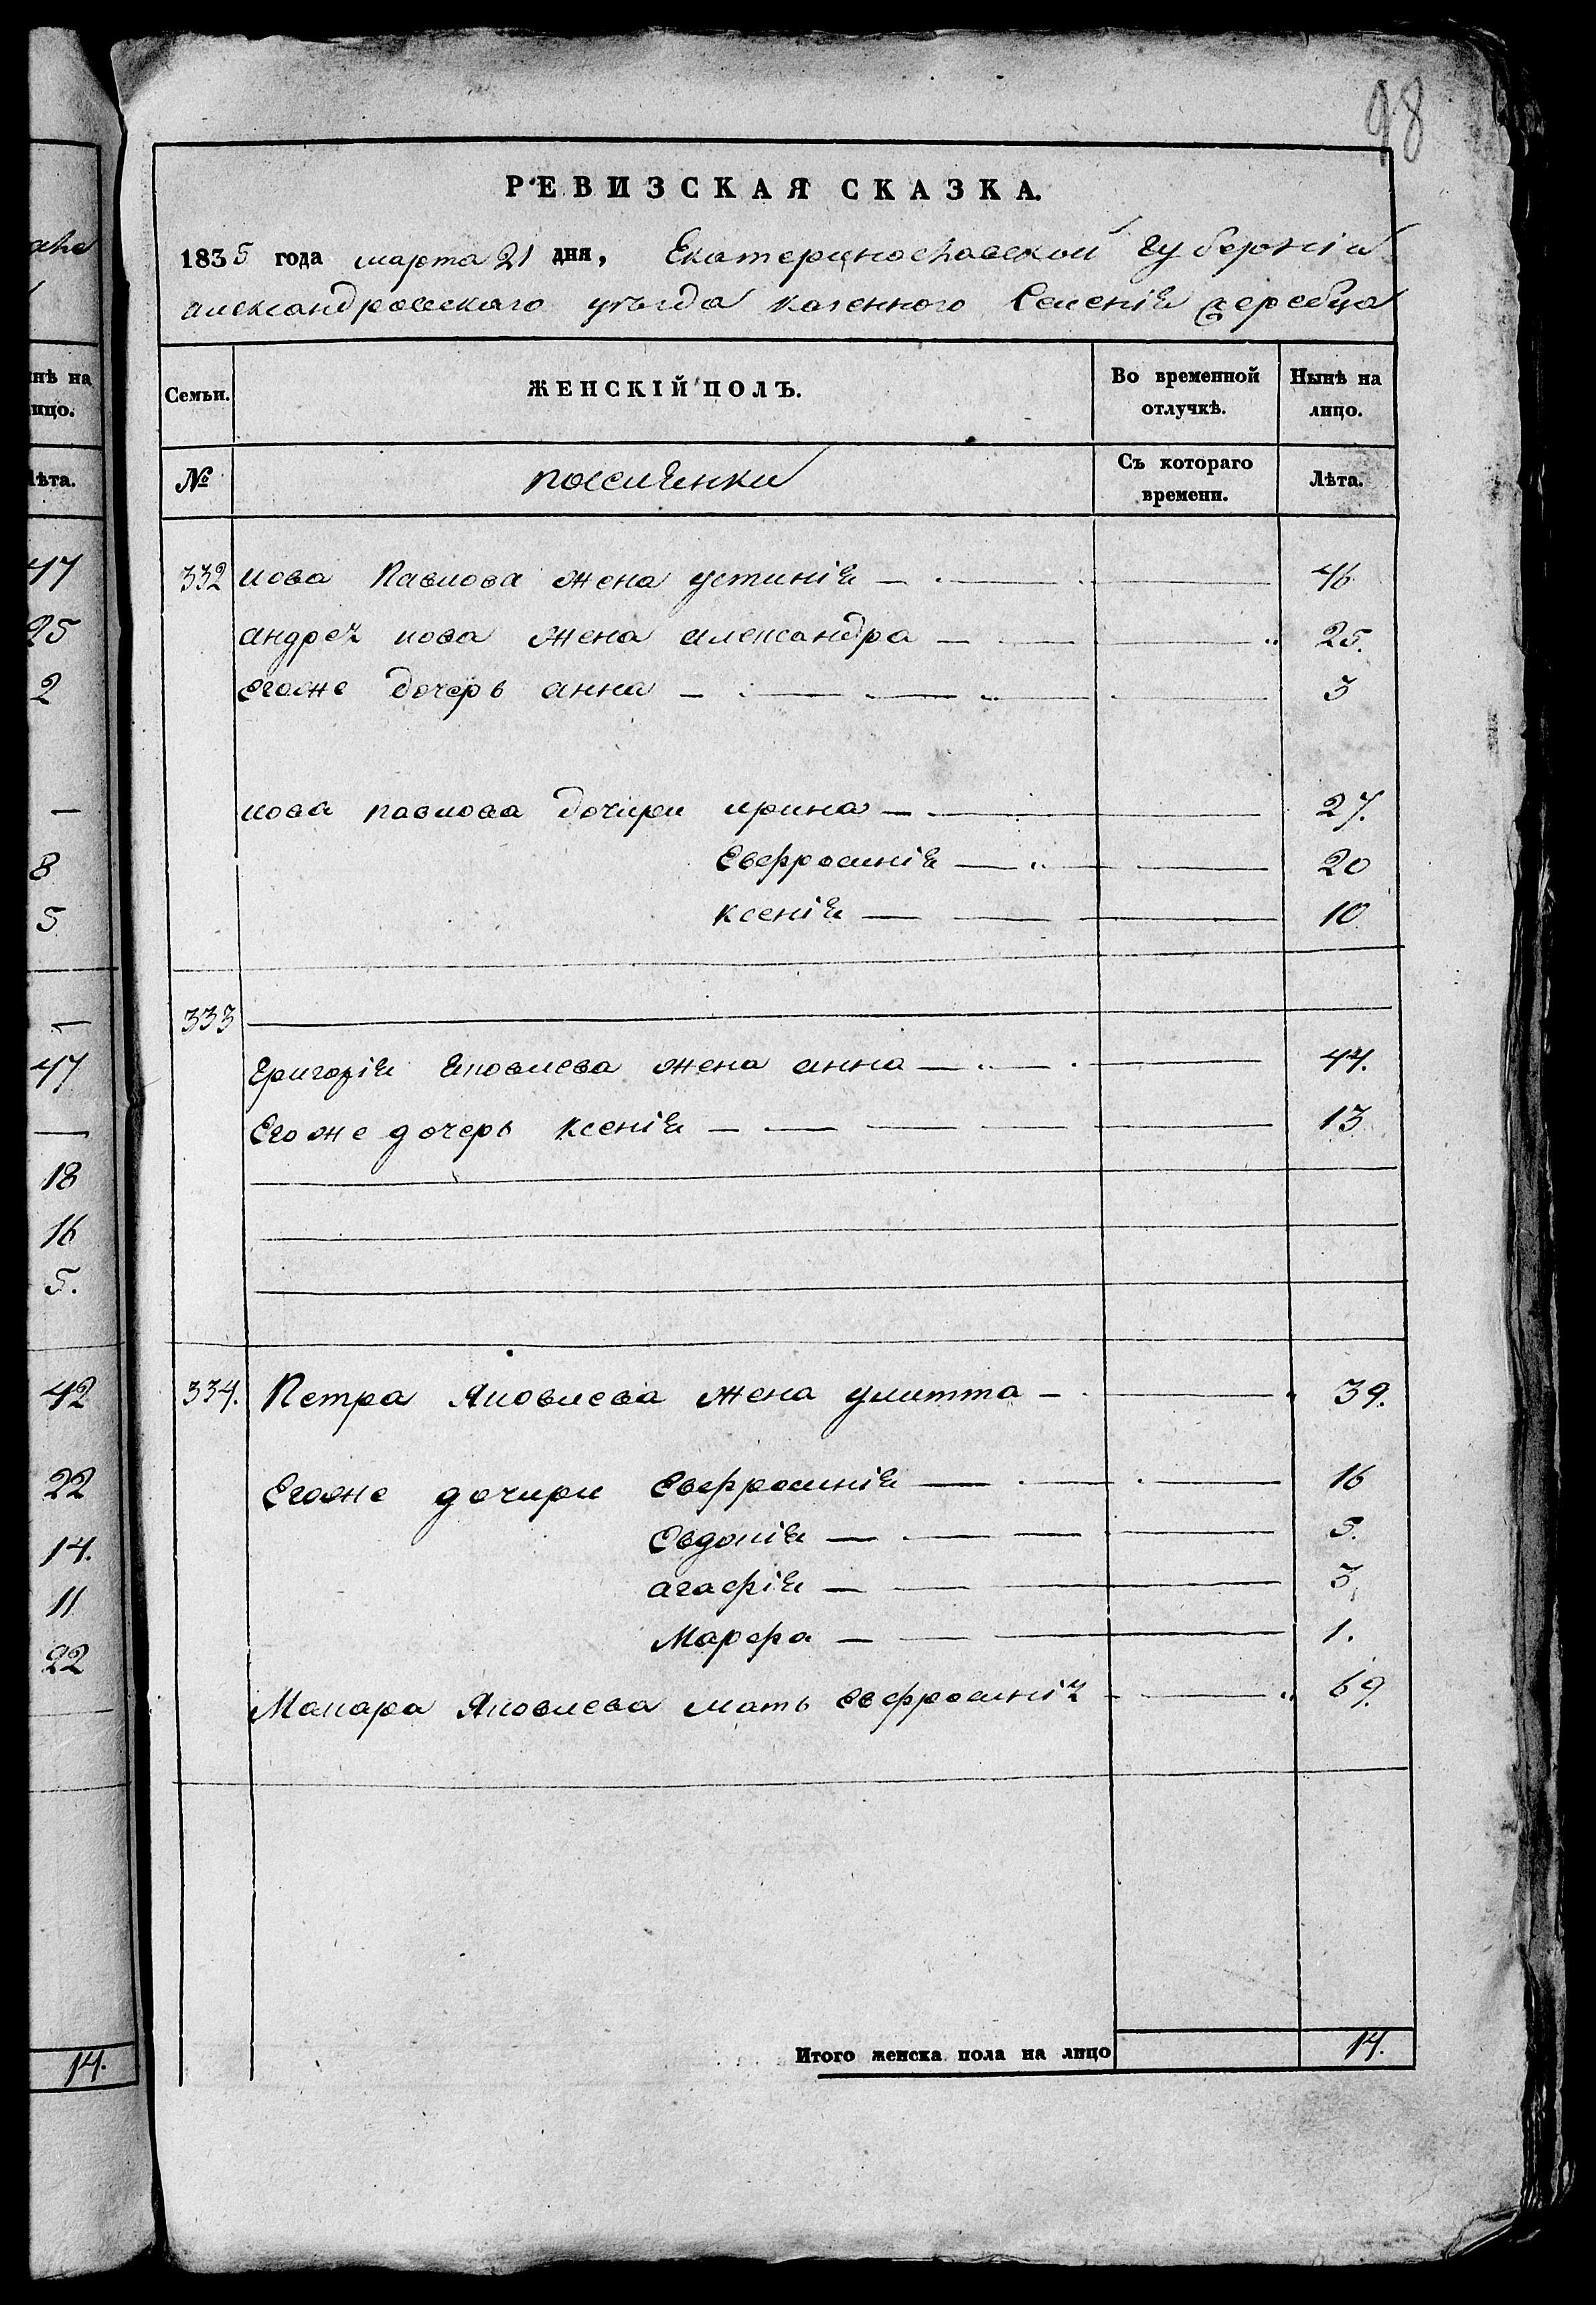 98
РЕВИЗСКАЯ СКАЗКА.
1835 года марта 21 дня, Екатеринославской губернiи
александровскаго уѣзда казенного Селенiя Жеребца
Семьи. ЖЕНСКIЙ ПОЛЪ. Во временной отлучкѣ. Нынѣ на лицо.
№ поселянки Съ котораго времени. Лѣта.
332 иова Павлова жена устинiя — 46
андрея иова жена александра — 25.
егоже дочерь анна — 3
иова павлова дочири ирина — 27.
Евфросинiя — 20
Ксенiя — 10
333
Григорiя Яковлева жена анна — 44.
Егоже дочерь Ксенiя — 13
334. Петра Яковлева жена улитта — 39.
Егоже дочири Евфросинiя — 16
Овдотiя — 5.
агафiя — 3
Марфа — 1.
Макара Яковлева мать Евфросинiя — 69.
Итого женска пола на лицо 14.
нѣ на
ицо.
лѣта.
47
25
2
—
8
5
—
47
—
18
16
5.
42
22
14.
11
22
14.